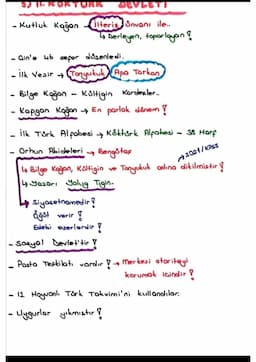 5) II. KÖKTÜRK DEVLETİ
- Kutluk Kağan → İlteriş ünvanı ile..
↳ Derleyen, toparlayan?
- Çin'e 46 sefer düzenledi.
- İlk Vezir → Tonyukuk / Apa Tarkan
- Bilge Kağan - Kültigin Kardeşler.
- Kapgan Kağan → En parlak dönem?
- İlk Türk Alfabesi → Köktürk Alfabesi - 38 Harf
- Orhun Abideleri → Bengütaş
↳ Bilge Kağan, Kültigin ve Tonyukuk adına dikilmiştir?
↳ Yazarı Yolug Tigin.
↳ Siyasetnamedir?
Öğüt verir?
Edebi eserlerdir?
- Sosyal Devlet'tir?
- Posta Teşkilatı vardır? → Merkezi otoriteyi
korumak içindir?
- 12 Hayvanlı Türk Takvimi'ni kullandılar.
- Uygurlar yıkmıştır?